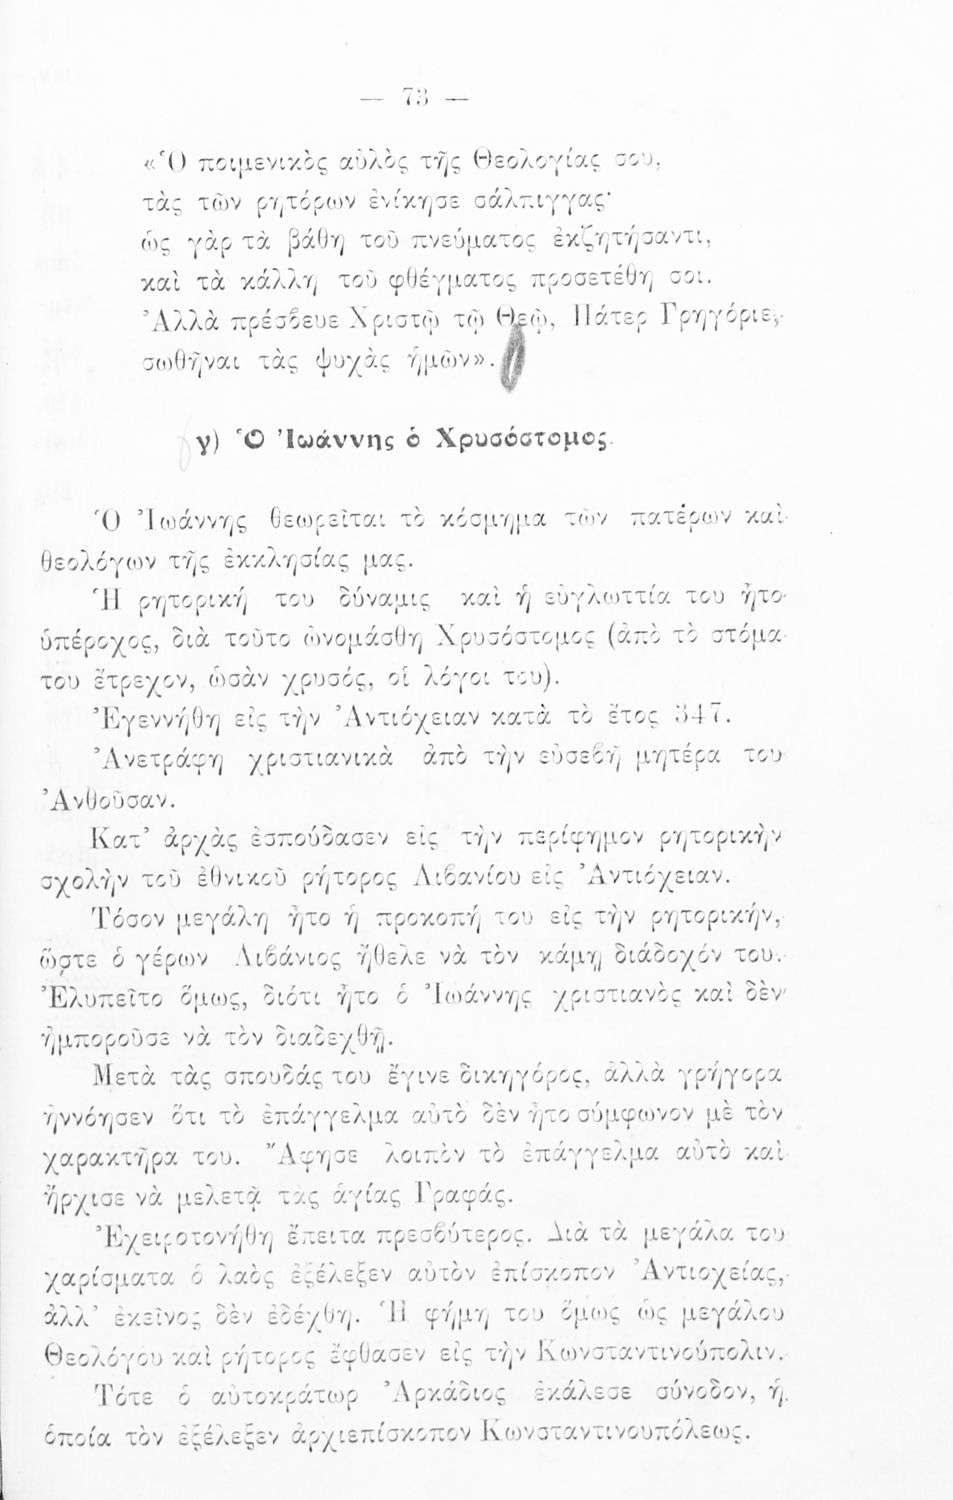 — 73 —
«Ὁ ποιμενικὸς αὐλὸς τῆς Θεολογίας σου,
τὰς τῶν ρητόρων ἐνίκησε σάλπιγγας·
ὡς γὰρ τὰ βάθη τοῦ πνεύματος ἐκζητήσαντι,
καὶ τὰ κάλλη τοῦ φθέγματος προσετέθη σοι.
Ἀλλὰ πρέσβευε Χριστῷ τῷ Θεῷ, Πάτερ Γρηγόριε,
σωθῆναι τὰς ψυχὰς ἡμῶν».
γ) Ὁ Ἰωάννης ὁ Χρυσόστομος.
Ὁ Ἰωάννης θεωρεῖται τὸ κόσμημα τῶν πατέρων καὶ
θεολόγων τῆς ἐκκλησίας μας.
Ἡ ρητορική του δύναμις καὶ ἡ εὐγλωττία του ἦτο
ὑπέροχος, διὰ τοῦτο ὠνομάσθη Χρυσόστομος (ἀπὸ τὸ στόμα
του ἔτρεχον, ὡσὰν χρυσός, οἱ λόγοι του).
Ἐγεννήθη εἰς τὴν Ἀντιόχειαν κατὰ τὸ ἔτος 347.
Ἀνετράφη χριστιανικὰ ἀπὸ τὴν εὐσεβῆ μητέρα του
Ἀνθοῦσαν.
Κατ’ ἀρχὰς ἐσπούδασεν εἰς τὴν περίφημον ρητορικὴν
σχολὴν τοῦ ἐθνικοῦ ρήτορος Λιβανίου εἰς Ἀντιόχειαν.
Τόσον μεγάλη ἦτο ἡ προκοπή του εἰς τὴν ρητορικήν,
ὥστε ὁ γέρων Λιβάνιος ἤθελε νὰ τὸν κάμῃ διάδοχόν του.
Ἐλυπεῖτο ὅμως, διότι ἦτο ὁ Ἰωάννης χριστιανὸς καὶ δὲν
ἠμποροῦσε νὰ τὸν διαδεχθῇ.
Μετὰ τὰς σπουδάς του ἔγινε δικηγόρος, ἀλλὰ γρήγορα
ἠννόησεν ὅτι τὸ ἐπάγγελμα αὐτὸ δὲν ἦτο σύμφωνον μὲ τὸν
χαρακτῆρα του. Ἄφησε λοιπὸν τὸ ἐπάγγελμα αὐτὸ καὶ
ἤρχισε νὰ μελετᾷ τὰς ἁγίας Γραφάς.
Ἐχειροτονήθη ἔπειτα πρεσβύτερος. Διὰ τὰ μεγάλα του
χαρίσματα ὁ λαὸς ἐξέλεξεν αὐτὸν ἐπίσκοπον Ἀντιοχείας,
ἀλλ’ ἐκεῖνος δὲν ἐδέχθη. Ἡ φήμη του ὅμως ὡς μεγάλου
Θεολόγου καὶ ρήτορος ἔφθασεν εἰς τὴν Κωνσταντινούπολιν.
Τότε ὁ αὐτοκράτωρ Ἀρκάδιος ἐκάλεσε σύνοδον, ἡ
ὁποία τὸν ἐξέλεξεν ἀρχιεπίσκοπον Κωνσταντινουπόλεως.